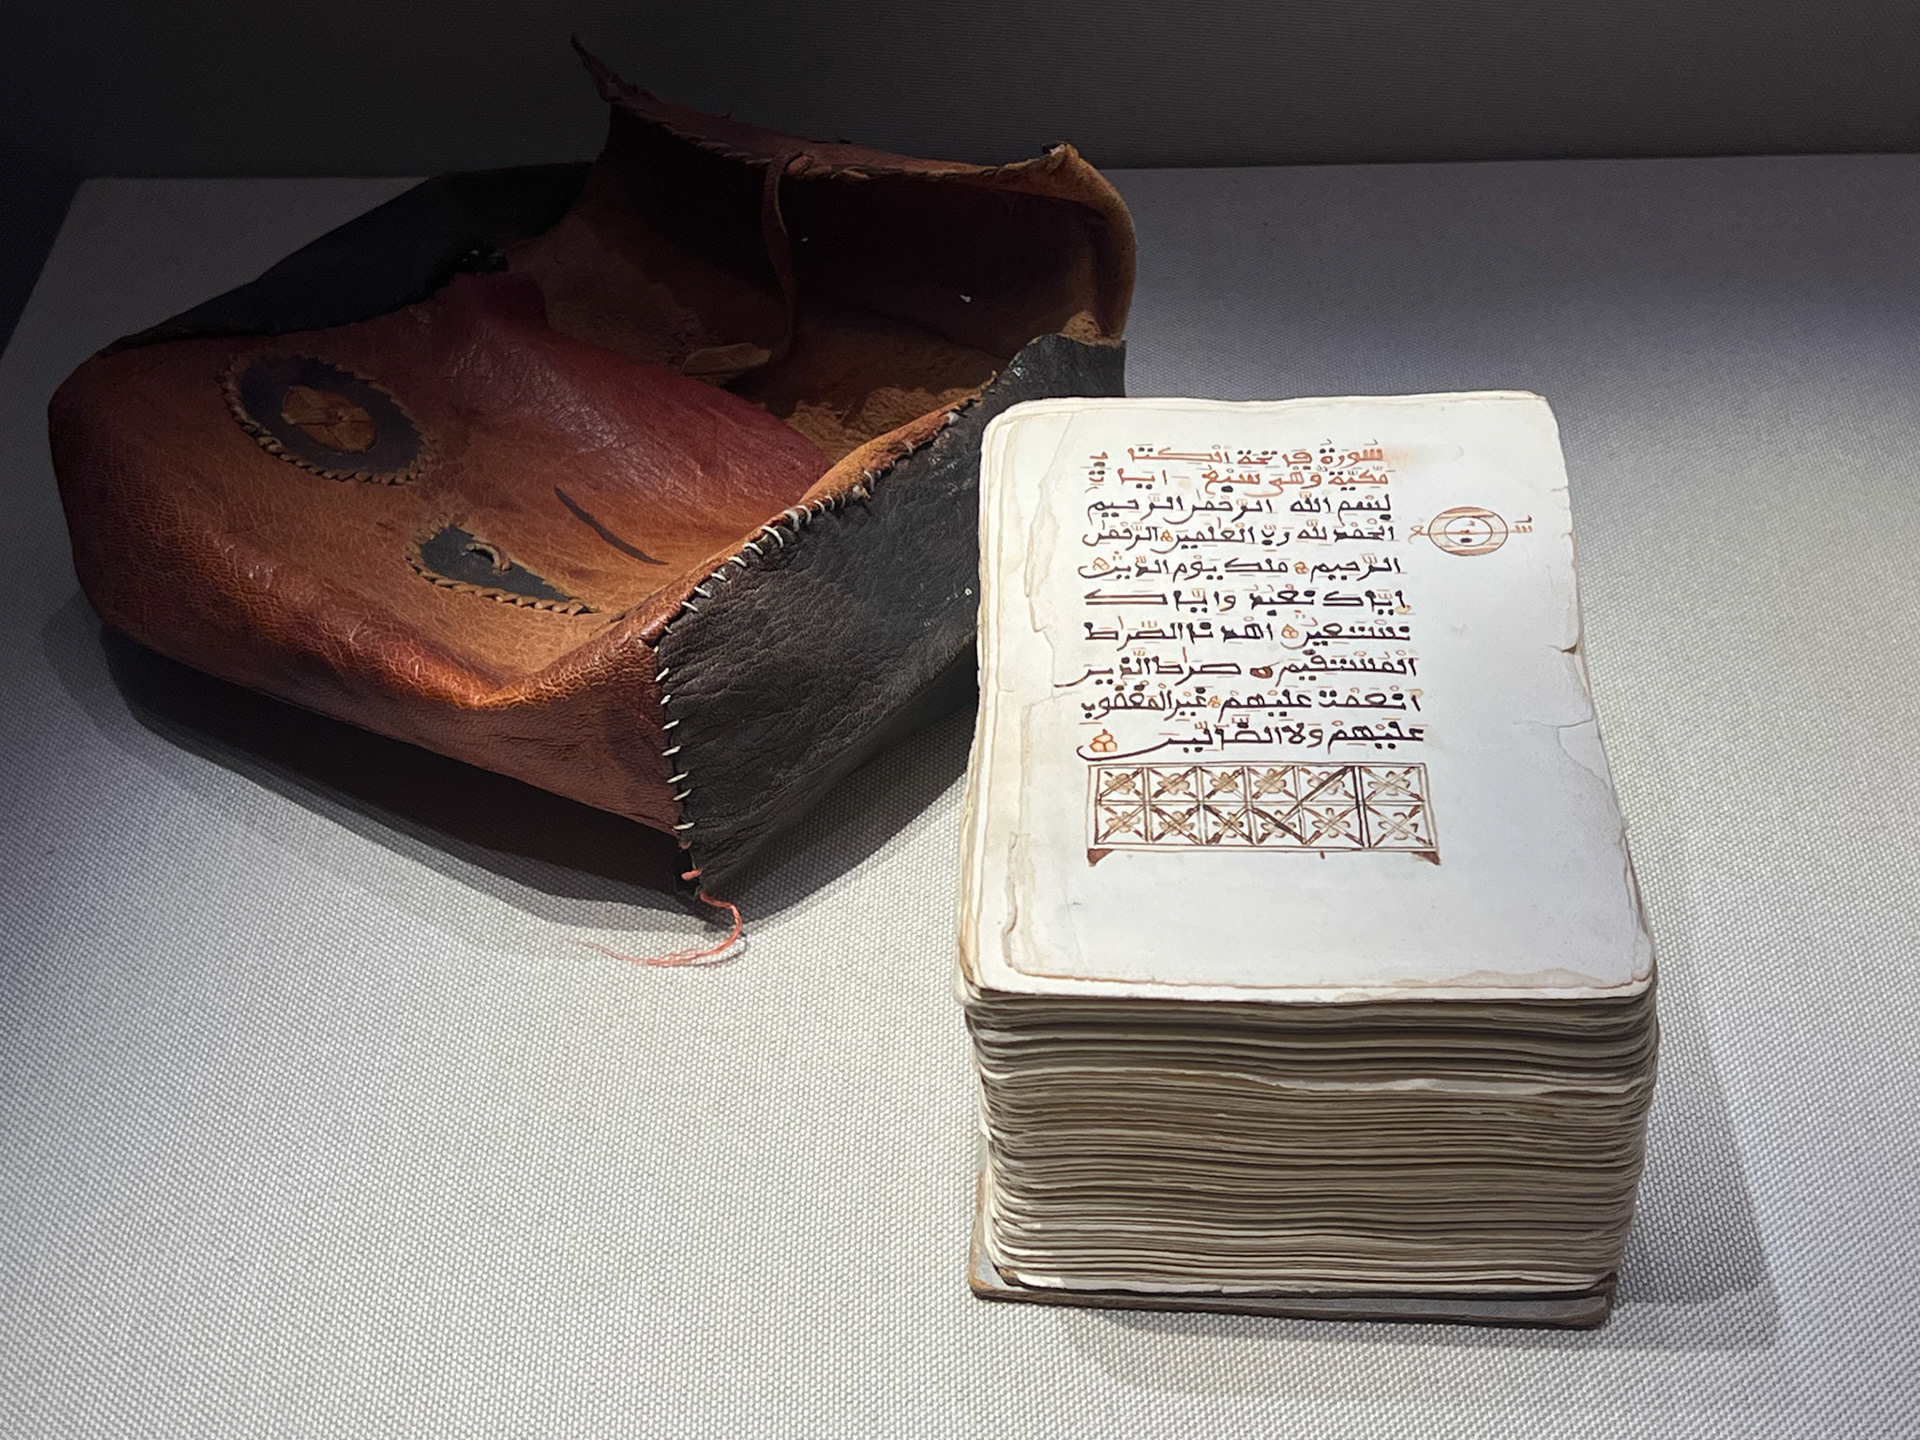 سورة فاتحة الكتا
مكية وهى سبع ايا
بسم الله الرحمن الرحيم
الحمد لله رب العلمين الرحمن
الرحيم ملك يوم الدين
اياك نعبد واياك
نستعين اهدنا الصرط
المستقيم صرط الذين
انعمت عليهم غير المغضوب
عليهم ولا الضالين